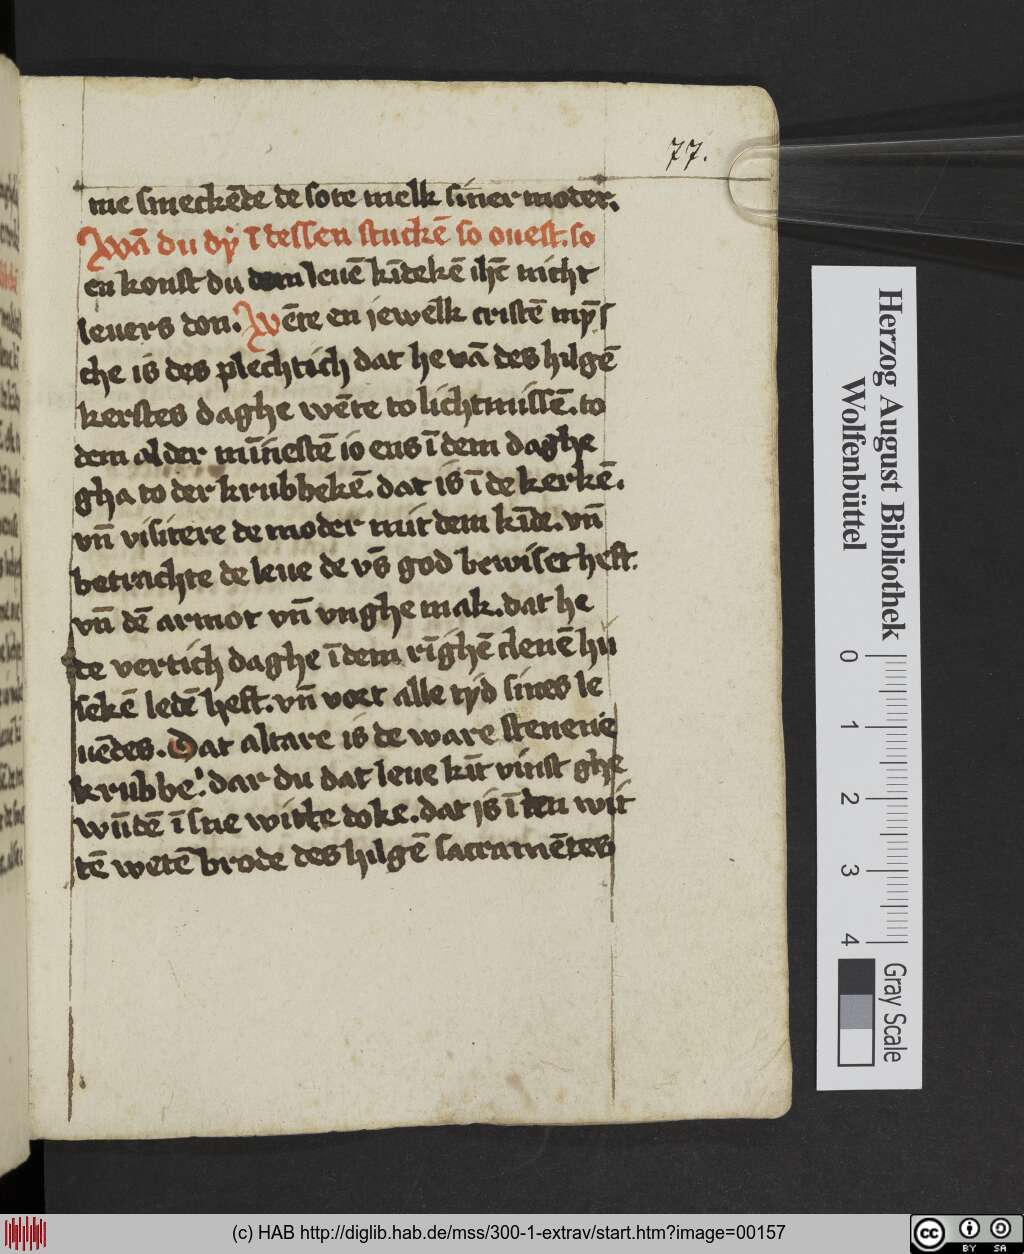 77.
me smeckēde de sote melk siner moder.
Wā du dy ī dessen stuckē so ouest. so
en konst du dem leuē kīdekē ihc̄ nicht
leuers don. Wēte en jewelk cristē mȳs
che is des plechtich dat he vā des hilgē
kerstes daghe wēte to lichtmissē. to
dem alder mīnestē io ens ī dem daghe
gha to der krubbekē. dat is ī de kerkē.
vn̄ visitere de moder mit dem kīde. vn̄
betrachte de leue de vs̄ god bewiset heft.
vn̄ dē armot vn̄ vnghemak. dat he
de vertich daghe ī dem rīghē cleuē hu
sekē ledē heft. vn̄ voet alle tyd sines le
uēdes. Dat altare is de ware stenene
krubbe. dar du dat leue kīt vinst ghe
wūdē ī sne witte doke. dat is ī den wit
tē wetē brode des hilgē sacramētes
Herzog August Bibliothek
Wolfenbüttel
0 1 2 3 4
Gray Scale
(c) HAB http://diglib.hab.de/mss/300-1-extrav/start.htm?image=00157
cc BY SA